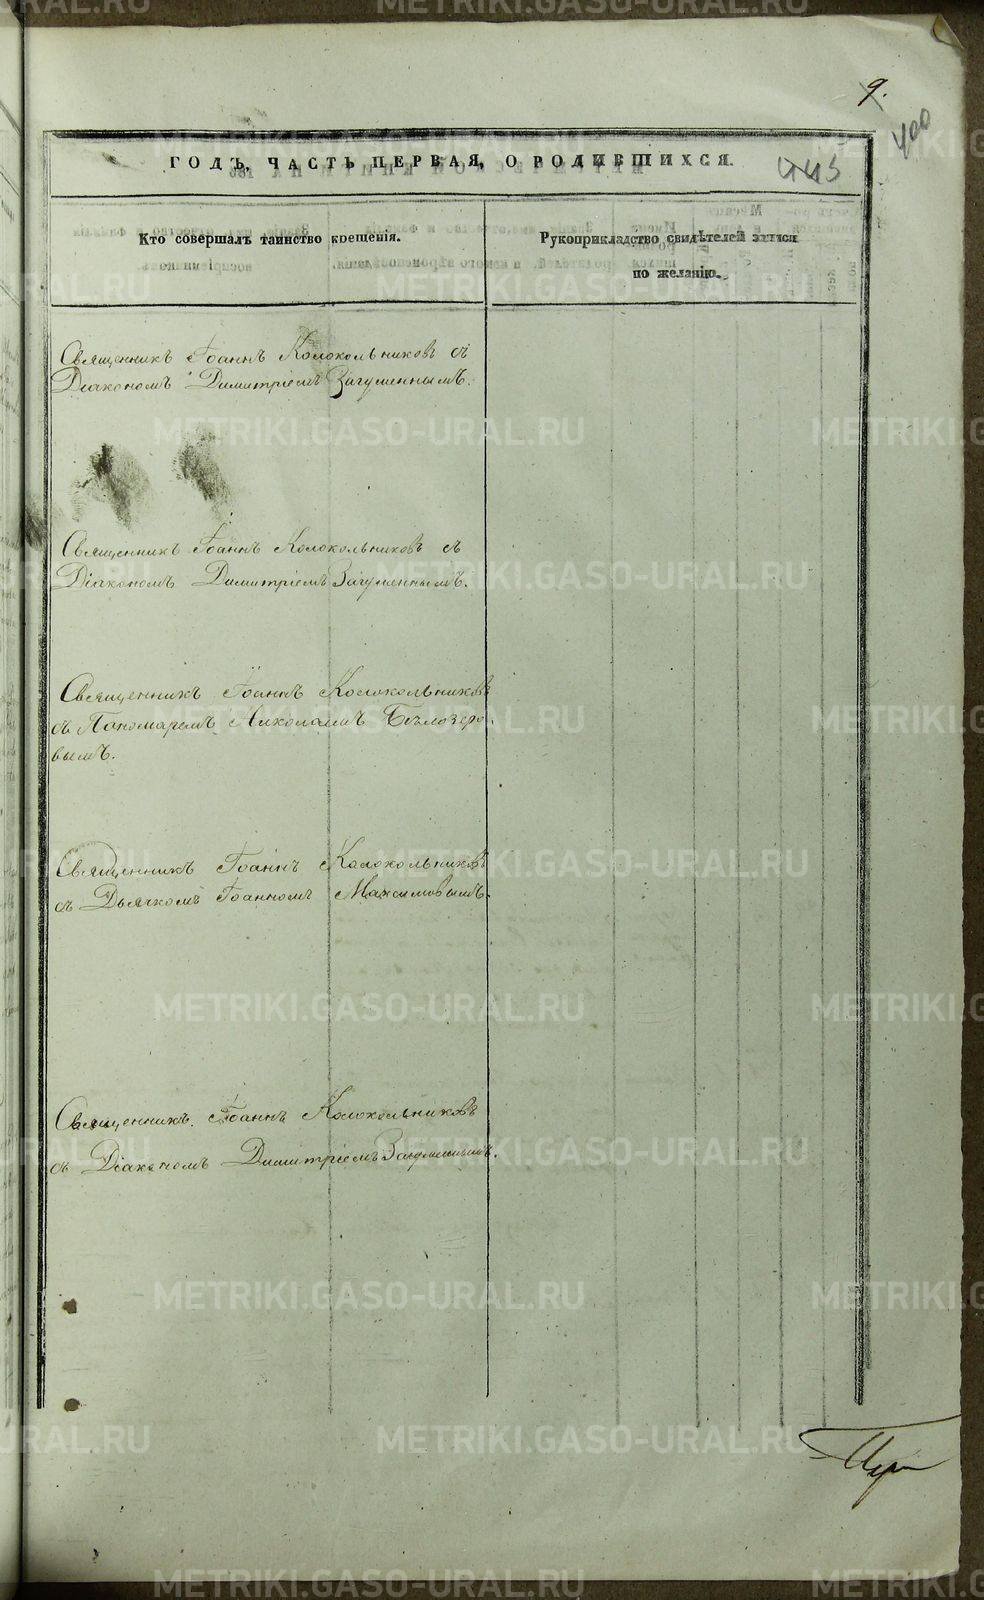 9.
400
ГОДЪ, ЧАСТЬ ПЕРВАЯ, О РОДИВШИХСЯ.
443
Кто совершалъ таинство крещенія.
Рукоприкладство свидѣтелей записи
по желанію.
Священникъ Іоаннъ Колокольниковъ съ
Діакономъ Димитріемъ Загуменнымъ.
Священникъ Іоаннъ Колокольниковъ съ
Діакономъ Димитріемъ Загуменнымъ.
Священникъ Іоаннъ Колокольниковъ
съ Пономаремъ Николаемъ Бѣлозеро-
вымъ.
Священникъ Іоаннъ Колокольниковъ
съ Дьячкомъ Іоанномъ Максимовымъ.
Священникъ Іоаннъ Колокольниковъ
съ Діакономъ Димитріемъ Загуменнымъ.
METRIKI.GASO-URAL.RU